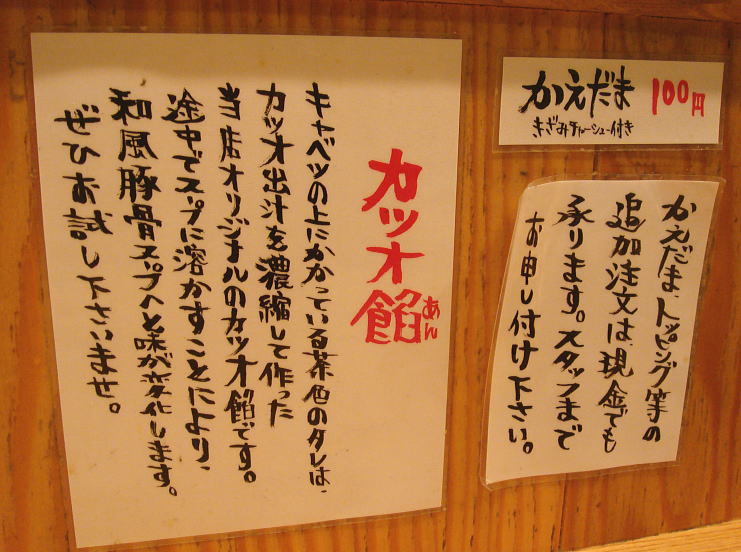 カツオ餡
あん
キャベツの上にかかっている茶色のタレは、
カツオ出汁を濃縮して作った
当店オリジナルのカツオ餡です。
途中でスープに溶かすことにより、
和風豚骨スープへと味が変化します。
ぜひお試し下さいませ。
かえだま 100円
きざみチャーシュー付き
かえだま、トッピング等の
追加注文は、現金でも
承ります。スタッフまで
お申し付け下さい。